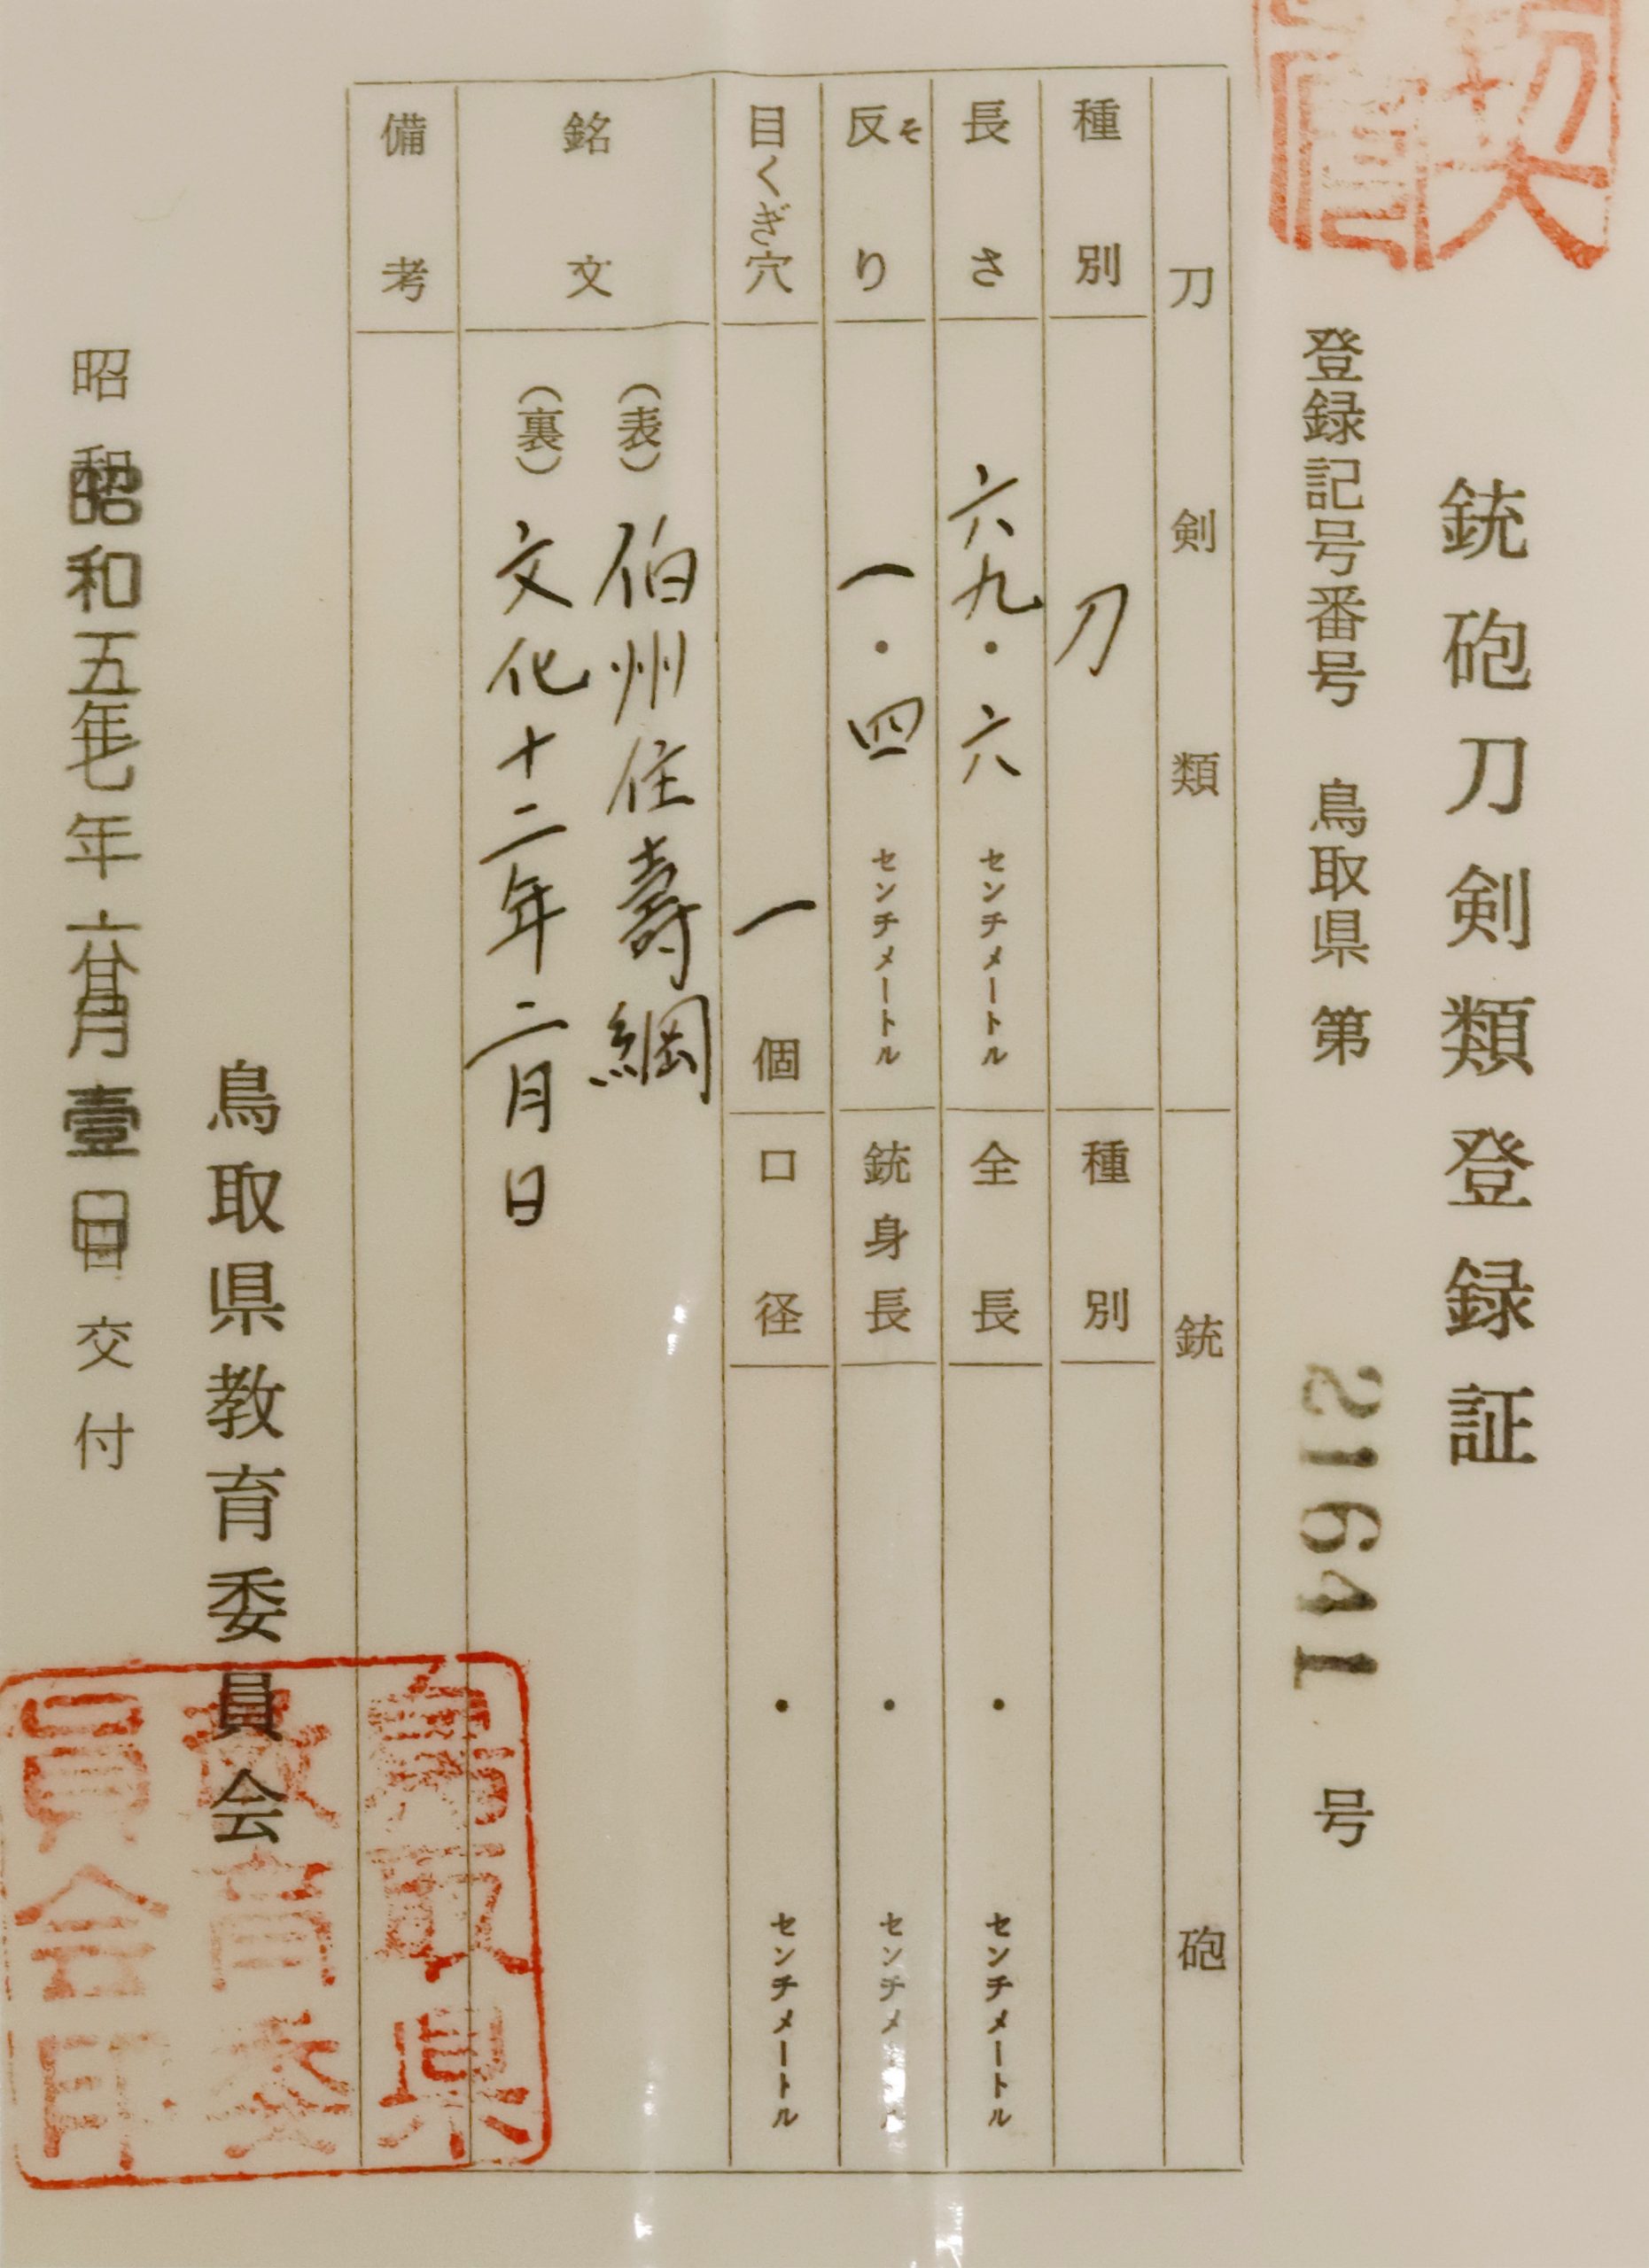 銃砲刀剣類登録証
登録記号番号 鳥取県 第 21641 号
刀剣類 銃砲
種別 刀 種別
長さ 六九・六 センチメートル 全長 ・ センチメートル
反り そ 一・四 センチメートル 銃身長 ・ センチメートル
目くぎ穴 一 個 口径 ・ センチメートル
銘文 (表) 伯州住壽綱
(裏) 文化十二年二月日
備考
鳥取県教育委員会
昭和 昭和五七年六月壹日 交付
鳥取県
教育委
員会印
契